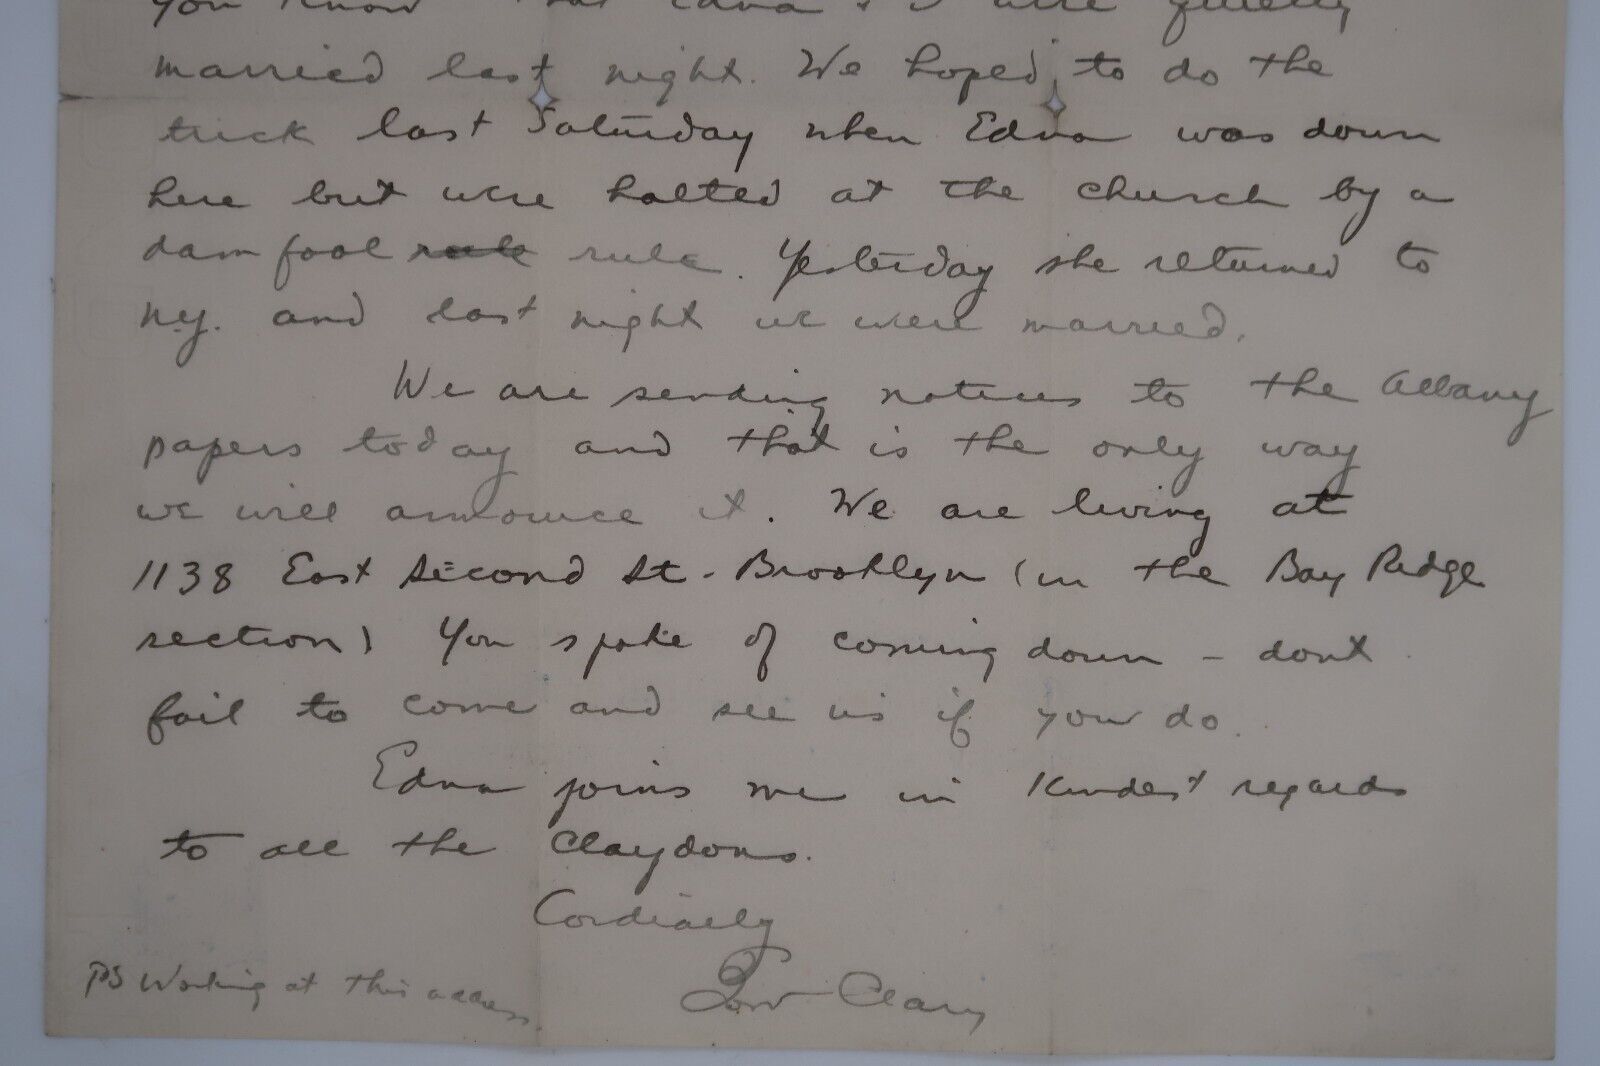 you know that Edna & I were quietly
married last night. We hoped to do the
trick last Saturday when Edna was down
here but were halted at the church by a
dam fool rule. Yesterday she returned to
N.Y. and last night we were married.
We are sending notices to the Albany
papers today and that is the only way
we will announce it. We are living at
1138 East Second St. Brooklyn (in the Bay Ridge
section) You spoke of coming down - dont
fail to come and see us if you do.
Edna joins me in kindest regards
to all the Claydons.
Cordially
Clary
PS Working at this address.